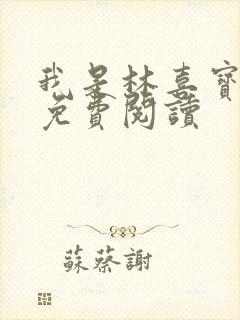 我是林喜寶
免費閱讀
蘇蔡謝